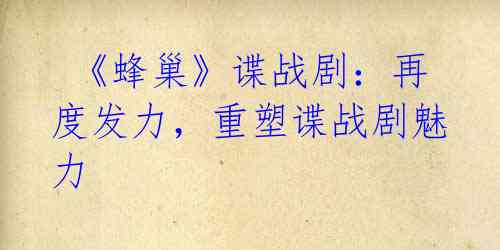 《蜂巢》谍战剧：再
度发力，重塑谍战剧魅
力